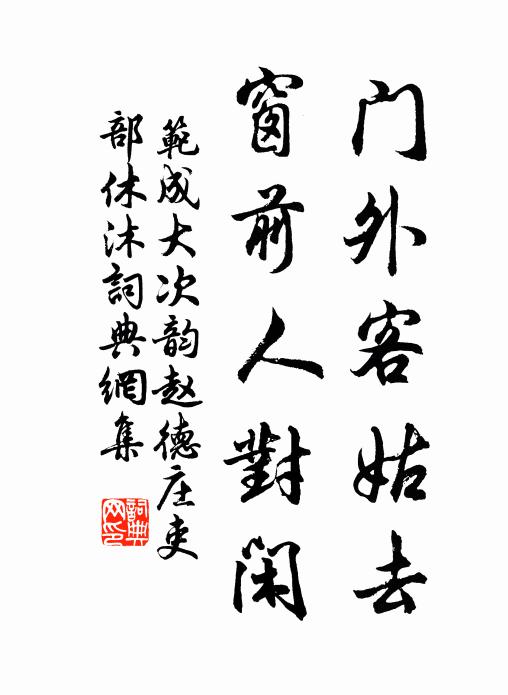 门外客姑去
窗前人對闲
範成大次韵赵德庄吏
部休沐詞典網集
詞典网印